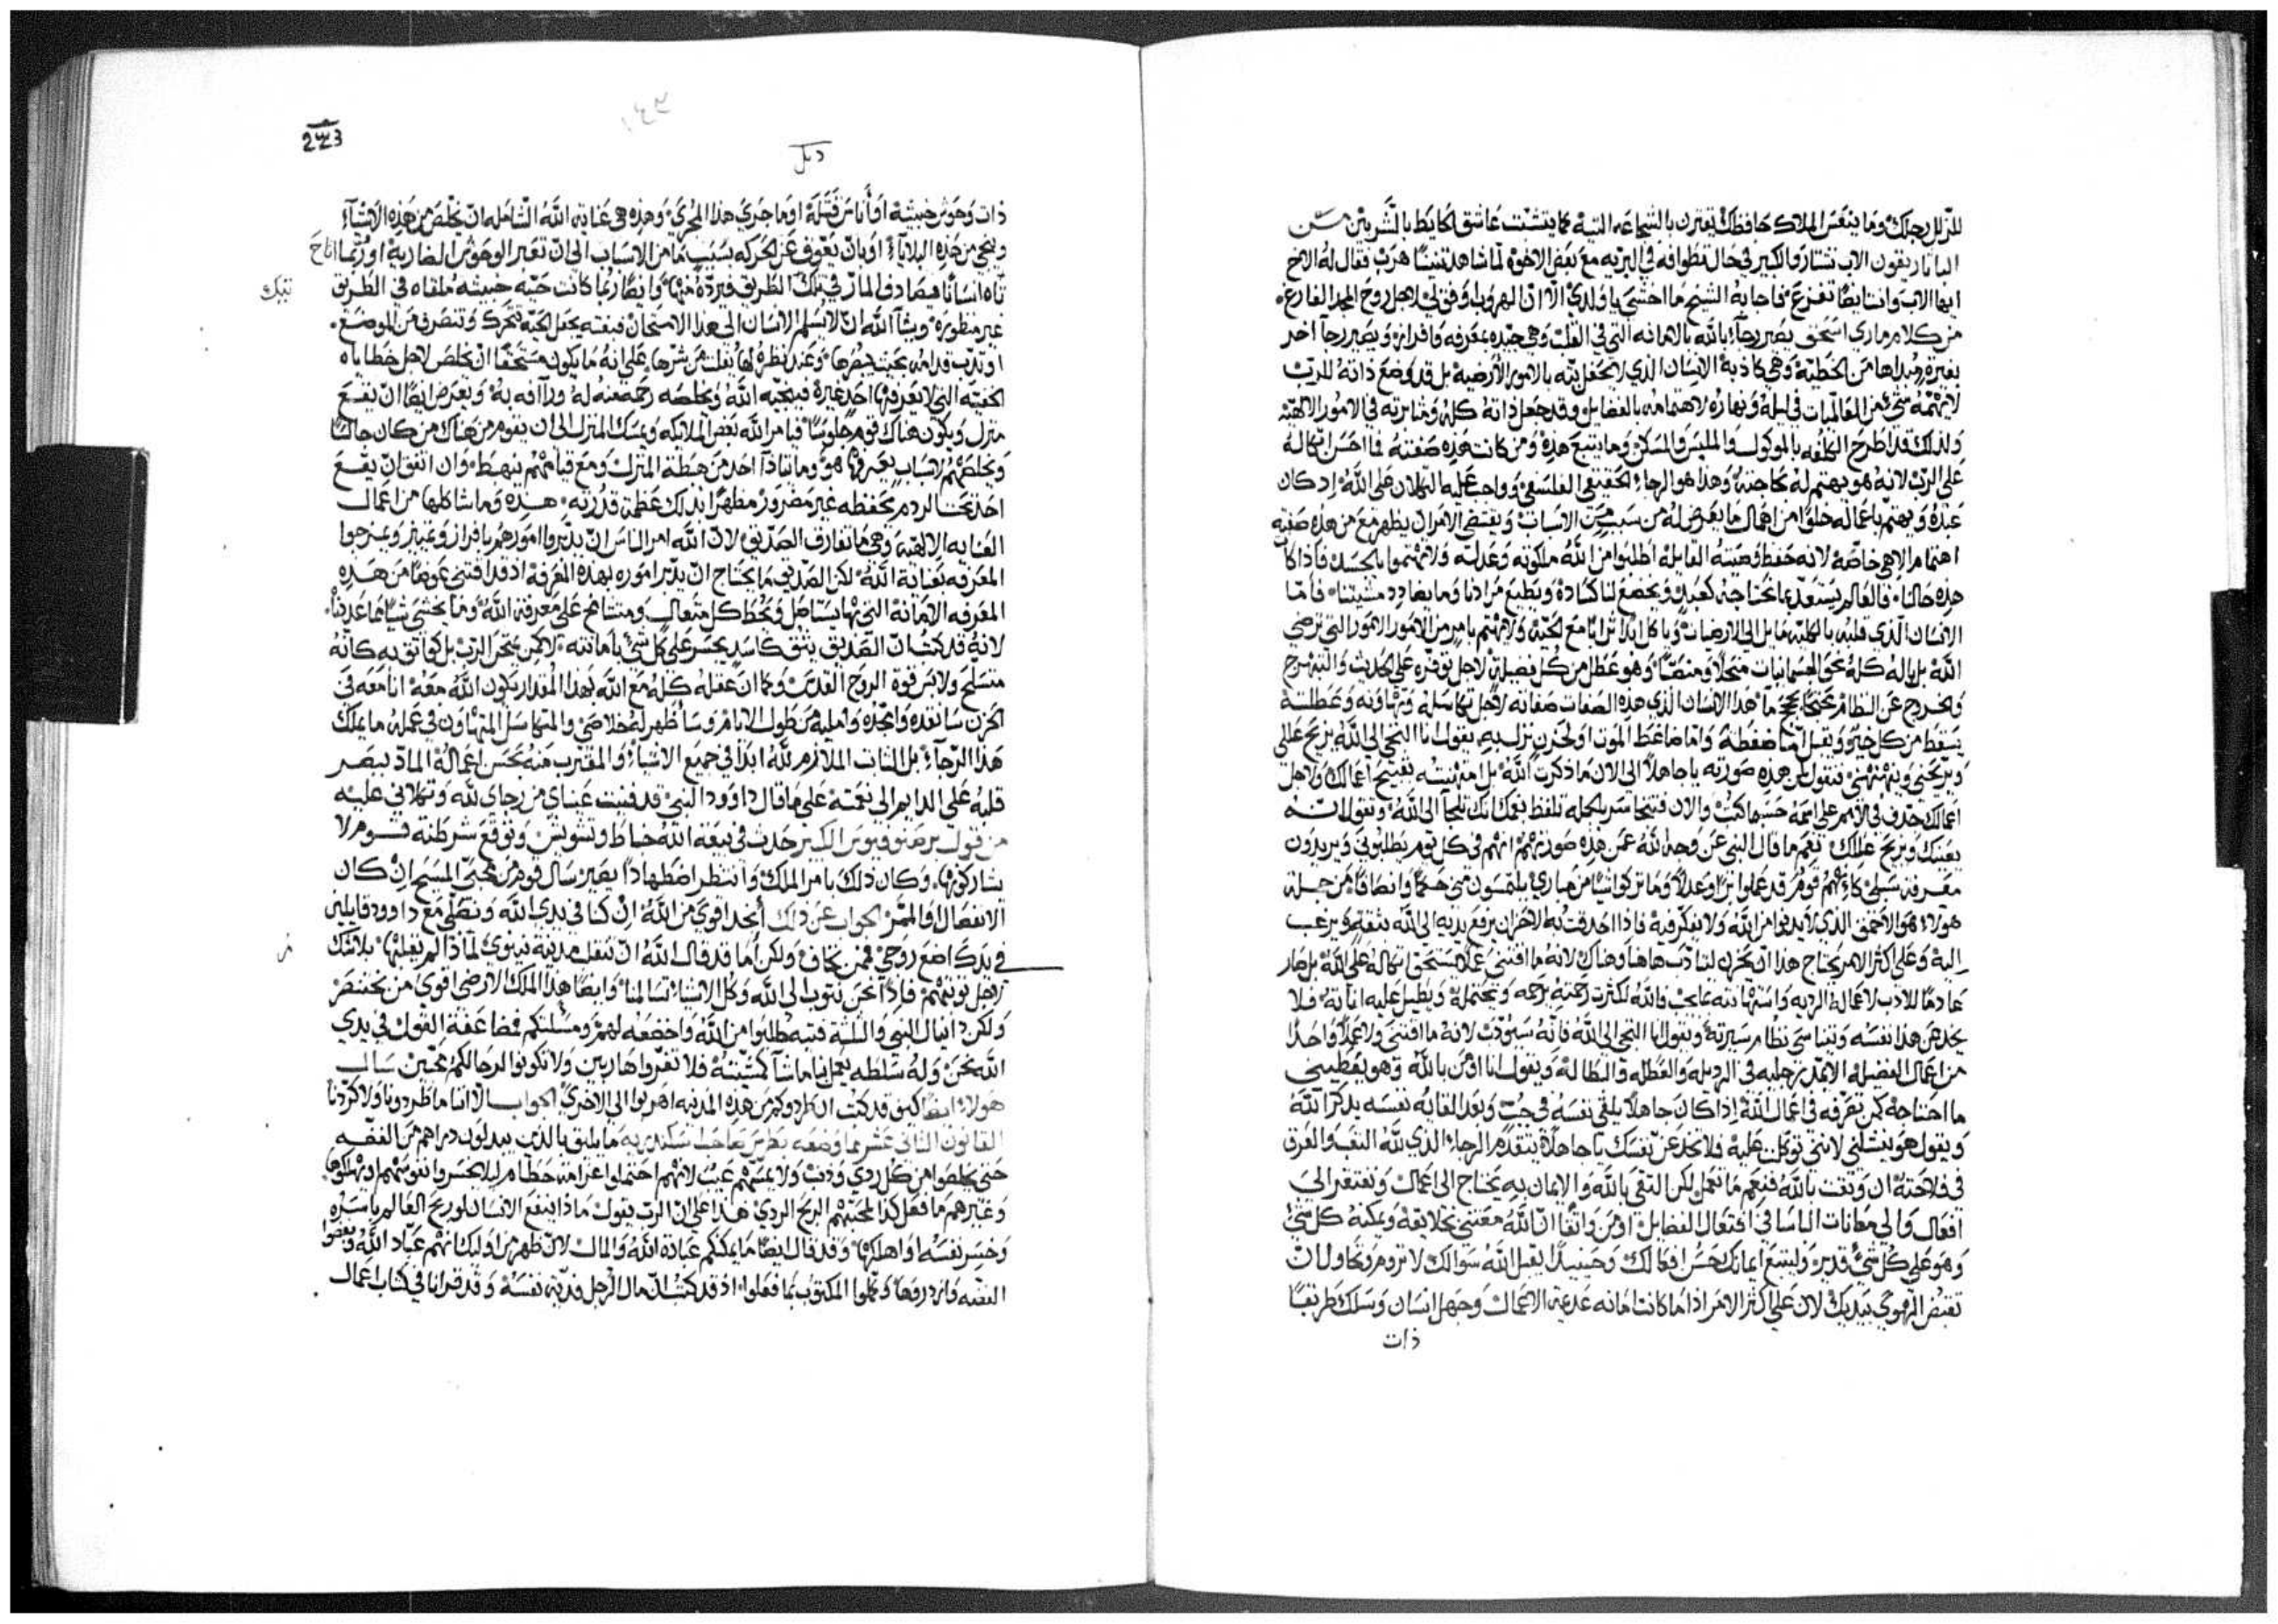 للزلل رجلك وما ينفس الملاك حافظك يقترن بالشجاعه التيه كما يتشتت عاشق لخايط بالشريين من
اليا نا ريقون الاب نستارو الكبير في حال تطوافه في البريه مع بعض الاخوه لما شاهد تنينًا هرب فقال له الاخ
ايها الاب وانت ايضًا تفزع فاجابه الشيخ ما اخشى ياولدي الا ان الهروب اوفق لي لاجل روح المجد الفارغ
من كلام ماري اسحق يصير رجآء بالله بالامانه التي في القلب وهي جيده بمعرفه وافراز ويصير رجآ اخر
بغيره مبداها من الخطيه وهي كاذبه الانسان الذي لا يحفل بته بالامور الارضيه بل قد وضع ذاته للرب
لا يهمه شي من العالميات في ليله ونهاره لاهتمامه بالفضايل وقد جعل ذاته كله ومثابرته في الامور الالهيه
ولذلك قد اطرح الكلفه بالموكول والملبس والمسكن وما يتبع هذه ومن كانت هذه صفته فما احسن اتكاله
على الرب لانه هو يهتم له بحاجته وهذا هو الرجاء الحقيقي الفلسفي وواجب عليه التكلان على الله اد كان
عبده ويهتم باعماله خلوًا من اهمال ما يعرض له من سبب من الاسباب ويقتضي الامر ان يظهر مع من هذه صفته
اهتمام الاهي خاصه لانه حفظ وصيته القايله اطلبوا من الله ملكوته وعدله ولا تهتموا بالجسد فاذا كان
هذه حالنا فالعالم يستعد بما نحتاجه كعبد ويخضع لنا كساده ويطيع مرادنا وما يضادد مشيتنا فاما
الانسان الذي قلبه بالكليه مايل الى الارضيات وياكل ابدًا ترابًا مع الحيه ولا يهتم بامر من الامور التي ترضي
الله بل باله كله نحو الجسمانيات
وخروج عن النظام هذا الانسان الذي هذه الصفات صفاته لاجل تكاسله وتهاونه وعطلته
يسقط من كل خير
ويريحني فنقول لمن هذه صورته يا جاهلًا الى الان ما ذكرت الله بل اهنته بقبيح اعمالك ولاجل
اعمالك جدف في الامم على اسمه حسبما كتب والان تلفظ بفمك انك تلتجا الى الله وتقول انه
يعينك ويريح عللك نعم ما قال النبي عن وجه الله عمن هذه صورتهم انهم في كل يوم يطلبوني ويريدون
معرفة سبلي كانهم قوم قد عملوا برًا وعدلًا وما تركوا شيًا من يلتمسون مني حكمًا وانصافًا من جملة
هولاء هو الاحمق الذي لا يدنوا من الله ولا يفكر فيه فاذا احدقت به الاحزان يرفع يديه الى الله بثقه ويرغب
اليه وعلى اكثر الامر يحتاج هذا ان يحزن لانه ما اقتنى عملًا يستحق اتكاله على الله بل صار
عادمًا للادب لاعماله الرديه واستهانته بما يجب فالله لكثرت رحمته يرحمه ويحتمله ويطيل عليه اناته فلا
يخدعن هذا نفسه ويتناسى نظام سيرته ويقول انا التجي الى الله فانه سيؤدب لانه ما اقتنى ولا عملًا واحدًا
من اعمال الفضيله لا يمد رجليه في الرديله والعطله والبطاله ويقول انا اومن بالله وهو يعطيني
ما احتاجه كمن تعرفه في اعمال الله اذا كان جاهلًا يلقي نفسه في جب وبعد القايه نفسه يذكر الله
ويقول هو ينشلني لانني توكلت عليه فلا تخدعن نفسك ياجاهلًا يتقدم الرجاء الذي لله التعب والعرق
في فلاحته ان وثقت بالله فنعم ما تعمل لكن التقي بالله والايمان به يحتاج الى اعمال ويفتقر الى
افعال والى معانات الباساء في افتعال الفضايل اومن واثقًا ان الله معتني بخلايقه ويمكنه كل شي
وهو على كل شي قدير وليتبع ايمانك بحسن افعالك وحينيذًا يقبل الله سوالك لا تروم وتحاول ان
تقبض الهوى بيديك لان على اكثر الامر اذا ما كانت امانه عدمية الاعمال وجهل انسان وسلك طريقًا
ذات
١٤٣
223
ذات وحوش خبيثه او أناس قتله او ما جري هذا المجري وهذه هي عناية الله الشامله ان يخلص من هذه الاشيآء
وينجي من هذه البلايآء او بان يعوق عن الحركه بسبب ما من الاسباب الى ان تعبر الوحوش الضاريه او ربما اتاح
تاه انسانًا فيصادف المار في تلك الطريق فيرده منها وايضًا ربما كانت حيه خبيثه ملقاه في الطريق
غير منظوره ويشآ الله ان لا يسلم الانسان الى هذا الامتحان فبغته يجعل الحيه تتحرك وتنصرف من الموضع
او تدب قدامه بحيث يبصرها وعند نظره لها يفلت من شرها على انه ما يكون مستحقًا ان يخلص لاجل خطاياه
الخفيه التي لا يعرفها احد غيره فينجيه الله ويخلصه رحمه منه له ورآفه به ويعرض ايضًا ان يقع
منزل ويكون هناك قوم جلوسًا فيامر الله بعض الملايكه ويمسك المنزل الى ان يقوم من هناك من كان جالسًا
ويخلصهم لاسباب يعرفها هو وما يتاذا احد من هبطة المنزل ومع قيامهم يهبط وان اتفق ان يقع
احد تحت الردم يحفظه غير مضرور مظهرًا بذلك عظمة قدرته هذه وما شاكلها من اعمال
العنايه الالهيه وهي ما تفارق الصديق لان الله امر الناس ان يدبروا امورهم بافراز وتمييز ويمزجوا
المعرفه بعناية الله لكن الصديق ما يحتاج ان يدبر اموره بهذه المعرفه اذ قد اقتنى عوضًا من هذه
المعرفه الامانه التي بها يستاصل ويحط كل متعال ومتشامخ على معرفة الله وما يخشى شيًا مما عددنا
لانه قد كتب ان الصديق يثق كاسد يجسر على كل شي بامانته لا كمن يمتحن الرب بل كواثق به كانه
متسلح ولابس قوة الروح القدس وكما ان عقله كله مع الله بهذا المقدار يكون الله معه انا معه في
الحزن سانقده وامجده واملية من طول الايام وساظهر له خلاصي والمتكاسل المتهاون في عمله ما يملك
هذا الرجآء بل الثابت الملازم لله ابدًا في جميع الاشيآء والمقترب منه بحسن اعماله الماد ببصر
قلبه على الدايم الى نعمته على ما قال داوود النبي قد فنيت عيناي من رجاي لله وتكلاني عليه
من قول برصنوفيوس الكبير حدث في بيعة الله خباط وتشويش وتوقع شرطنة قوم لا
نشاركونها وكان ذلك بامر الملك وانتظر اضطهادًا يصير سال قوم من محبي المسيح ان كان
الانفصال والممر الجواب عن ذلك أنجد اقوى من الله ان كنا في يدي الله ونصلي مع داوود قايلين
في يدك اضع روحي فممن نخاف ولكن اما قد قال الله ان تنقلب مدينة نينوى لماذا لم يقلبها بلا شك
لاجل توبتهم فاذًا نحن نتوب الى الله وكل الاشياء تسالمنا وايضًا هذا الملك الارضي اقوى من بختنصر
ولكن دانيال النبي والثلثة فتيه طلبوا من الله واخضعه لهم ومسلتكم فضاعفة القول في يدي
الله نحن وله سلطه يعمل بنا ما شآ كمشيته فلا تفروا هاربين ولا تكونوا لرحالكم محبين سال
هولاء ايضًا كيف قد كتب ان طردوكم من هذه المدينه اهربوا الى الاخرى الجواب الا اننا ما طردونا ولا كردنا
القانون الثاني عشر مما وضعه بطرس اسكندريه ما يليق بالذين يبدلون دراهم من الفضه
حتى يخلصوا من كل ردي وذنب ولا يمسهم عيب لانهم احتملوا غرامة حطام ليلا يخسروا نفوسهم او يهلكوها
وغيرهم ما فعل كذا لمحبتهم الربح الردي هذا على ان الرب يقول ماذا ينفع الانسان لو ربح العالم باسره
وخسر نفسه او اهلكها وقد قال ايضًا ما يمكنكم عبادة الله والمال لان ظهر من اوليك انهم عباد الله وبغضوا
الفضه وازدروها وكملوا المكتوب بما فعلوا اذ قد كتب ان مال الرجل فدية نفسه وقد قرانا في كتاب اعمال